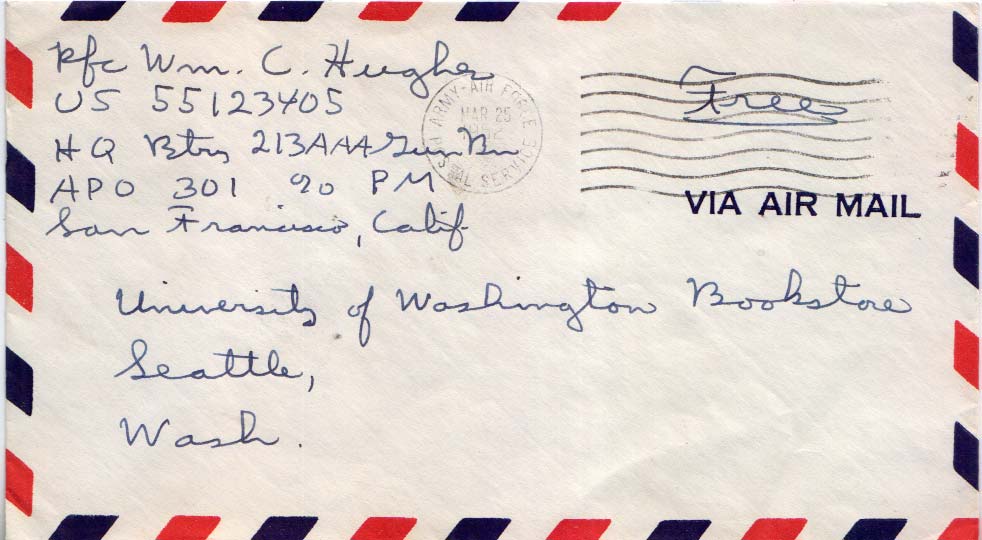 Pfc Wm. C. Hughes
US 55123405
HQ Btry 213AAAGunBn
APO 301 % PM
San Francisco, Calif.
ARMY-AIR FORCE
POSTAL SERVICE
MAR 25
1952
Free
VIA AIR MAIL
University of Washington Bookstore
Seattle,
Wash.